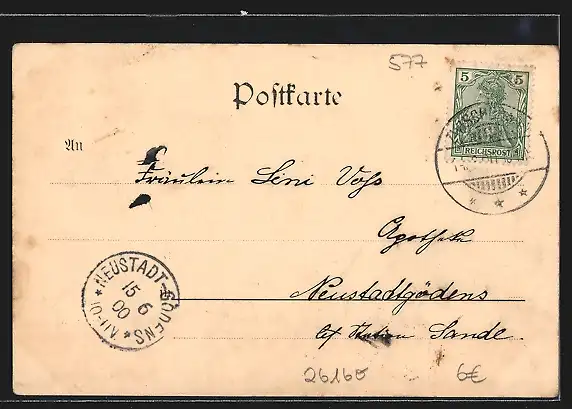 577
5 5
REICHSPOST
Postkarte
An
Fräulein Leni Vohs
Apotheke
Neustadtgödens
Station Sande.
NEUSTADT-GÖDENS
15 6
00
26160 6€